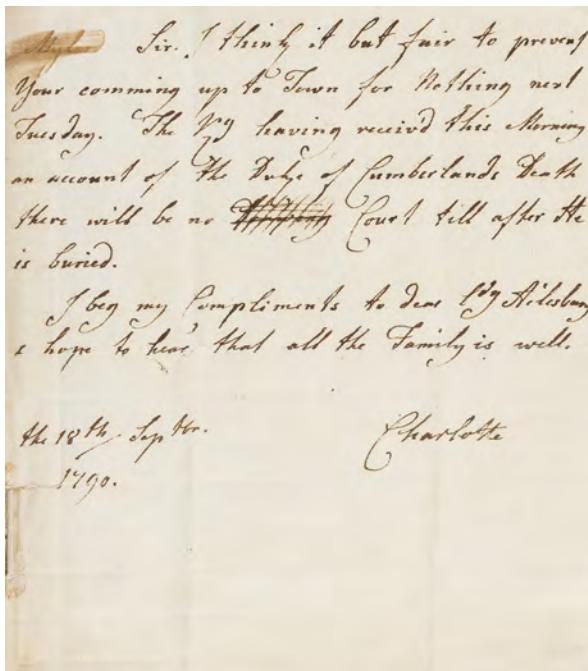 Sir. I think it but fair to prevent
Your comming up to Town for Nothing next
Tuesday. The Kg having receivd this Morning
an account of the Duke of Cumberlands Death
there will be no Court till after He
is buried.
I beg my Compliments to dear Ldy Ailesbury
& hope to hear that all the Family is well.
the 18th Septbr.
Charlotte
1790.